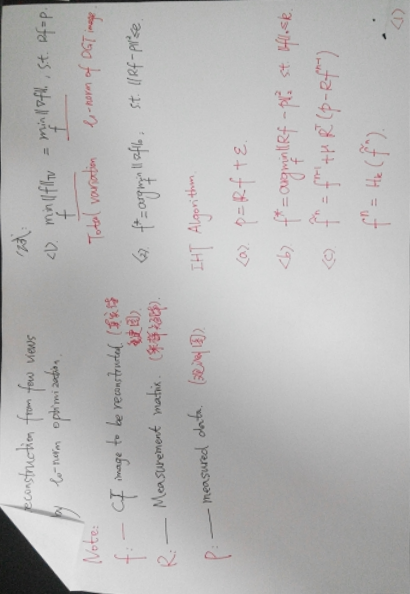 reconstruction from few views
by l₀-norm optimization.
Note:
f: — CT image to be reconstructed.
R: — Measurement matrix.
P: — measured data.
公式:
<1>. min‖f‖TV = min‖∇f‖₁, s.t. Rf=p.
f f
Total variation l₁-norm of DGT image.
<2> f* = argmin‖∇f‖₀, s.t. ‖Rf-p‖²≤ε.
f
IHT Algorithm.
<a> p=R·f+ε.
<b> f* = argmin‖Rf-p‖²₂ s.t. ‖f‖₀≤k.
f
<c> f̃ⁿ = fⁿ⁻¹+μRᵀ(p-Rfⁿ⁻¹)
fⁿ = Hk(f̃ⁿ).
<1>